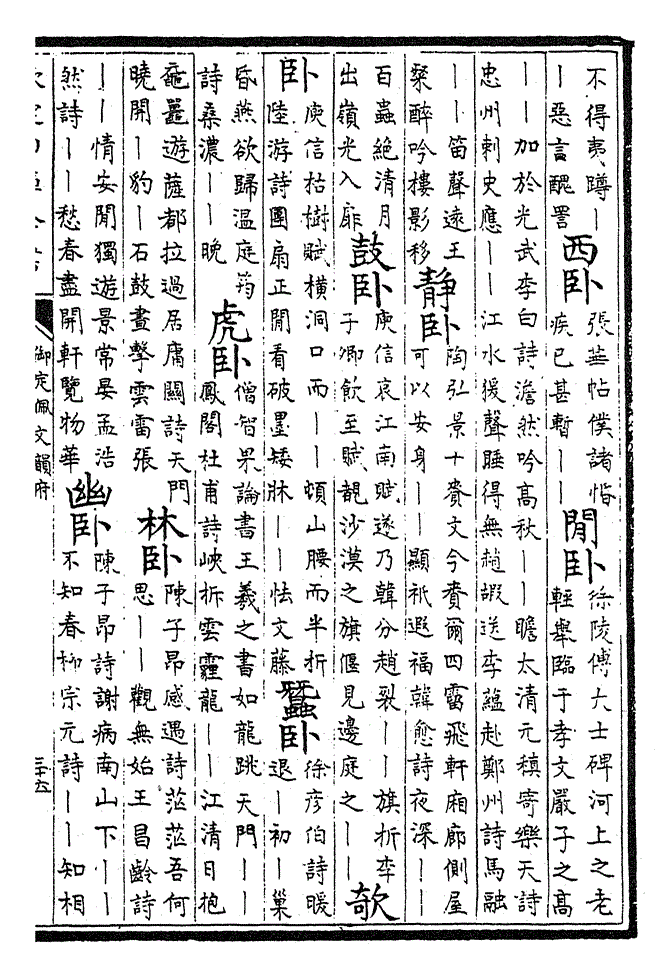 不得夷蹲丨
丨惡言醜詈
西卧
張華帖僕諸惛
疾已甚暫丨丨
閒卧
徐陵傅大士碑河上之老
輕舉臨于孝文嚴子之高
丨丨加於光武李白詩澹然吟高秋丨丨瞻太清元稹寄樂天詩
忠州刺史應丨丨江水猨聲睡得無趙嘏送李蘊赴鄭州詩馬融
丨丨笛聲遠王
粲醉吟樓影移
静卧
陶弘景十賚文今賚爾四霤飛軒廂廊側屋
可以安身丨丨顯祇遐福韓愈詩夜深丨丨
百蟲絶清月
出嶺光入扉
鼓卧
庾信哀江南賦遂乃韓分趙裂丨丨旗折李
子卿飲至賦覩沙漠之旗偃見邊庭之丨丨
欹
卧
庾信枯樹賦横洞口而丨丨頓山腰而半折
陸游詩團扇正閒看破墨矮牀丨丨怯文藤
蠶卧
徐彦伯詩暖
退丨初丨巢
昏燕欲歸温庭筠
詩桑濃丨丨晚
虎卧
僧智果論書王羲之書如龍跳天門丨丨
鳳閣杜甫詩峽折雲霾龍丨丨江清日抱
黿鼉遊薩都拉過居庸關詩天門
曉開丨豹丨石鼓晝擊雲雷張
林卧
陳子昂感遇詩茫茫吾何
思丨丨觀無始王昌齡詩
丨丨情安閒獨遊景常晏孟浩
然詩丨丨愁春盡開軒覽物華
幽卧
陳子昂詩謝病南山下丨丨
不知春柳宗元詩丨丨知相
御定佩文韻府
三十六